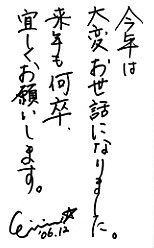 今年は
大変お世話になりました。
来年も何卒、
宜しくお願いします。
'06.12